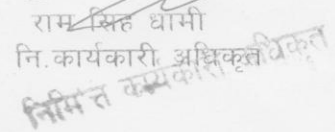 राम सिंह धामी
नि.कार्यकारी अधिकृत
निमित्त कार्यकारी अधिकृत